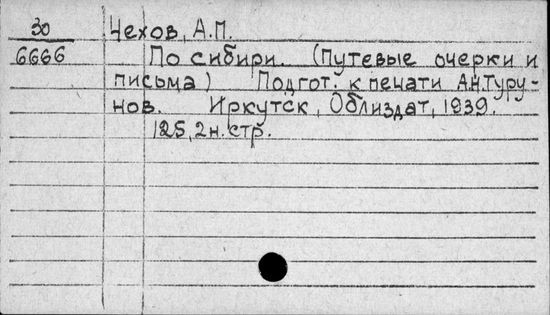 30 Чехов, А.П.
6666 По сибири. (Путевые очерки и
письма) Подгот. к печати А.Н.Туру-
нов. Иркутск, Облиздат, 1939.
125, 2 н. стр.